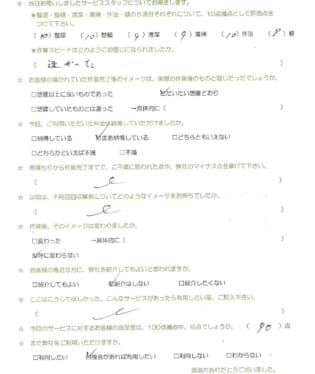 ☆ 当日お伺いしましたサービススタッフについてお聞きします。
★整理・整頓・清潔・清掃・作法・躾の6項目それぞれについて、10点満点として評価点を
つけて下さい。
(10)整理 (10)整頓 (9)清潔 (9)清掃 (10)作法 (8)躾
★作業スピードはどのようにお感じになられましたか。
( 速かった )
☆ お客様の描かれていた作業完了後のイメージは、実際の作業後のものと同じだったでしょうか。
□想像以上に良いものであった □だいたい想像どおり
□想像していたものとは違った →具体的に( )
☆ 今回、ご利用いただいた料金は納得していただけましたか。
□納得している □まあ納得している □どちらともいえない
□どちらかといえば不満 □不満
☆ 見積もりから作業完了までで、ご不満に思われた点や、弊社のマイナス点を挙げて下さい。
( )
☆ 以前は、不用品回収業者についてどのようなイメージをお持ちでしたか。
( )
☆ 作業後、そのイメージは変わりましたか。
□変わった →具体的に( )
□特に変わらない
☆ お客様の身近な方に、弊社を紹介してもよいと思われますか。
□紹介してもよい □紹介はしない □紹介したくない
☆ ここはこうしてほしかった、こんなサービスがあったら利用したい等、ご記入下さい。
( )
☆ 今回のサービスに対するお客様の満足度は、100点満点中、何点でしょうか。 (90)点
☆ また弊社をご利用いただけますか。
□利用したい □機会があれば利用したい □利用しない □わからない
ありがとうございました。